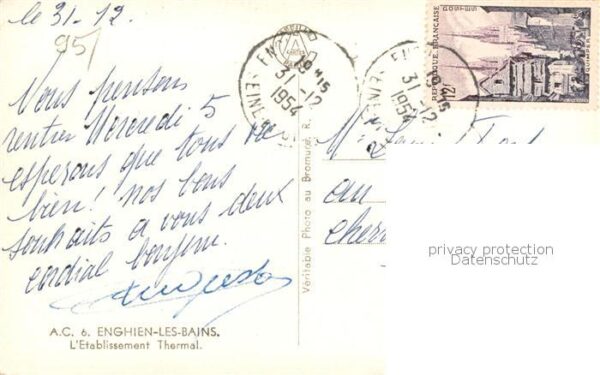 le 31-12.
95
Vous pensons
rentrer Mercredi 5
esperons que tous va
bien! nos bons
souhaits a vous deux
cordial bonjour.
A.C. 6. ENGHIEN-LES-BAINS.
L'Etablissement Thermal.
Véritable Photo au Bromure. R.
19 H 15
31-12
1954
31-12
1954
POSTES
REPUBLIQUE FRANÇAISE
QUIMPER
au
privacy protection
Datenschutz